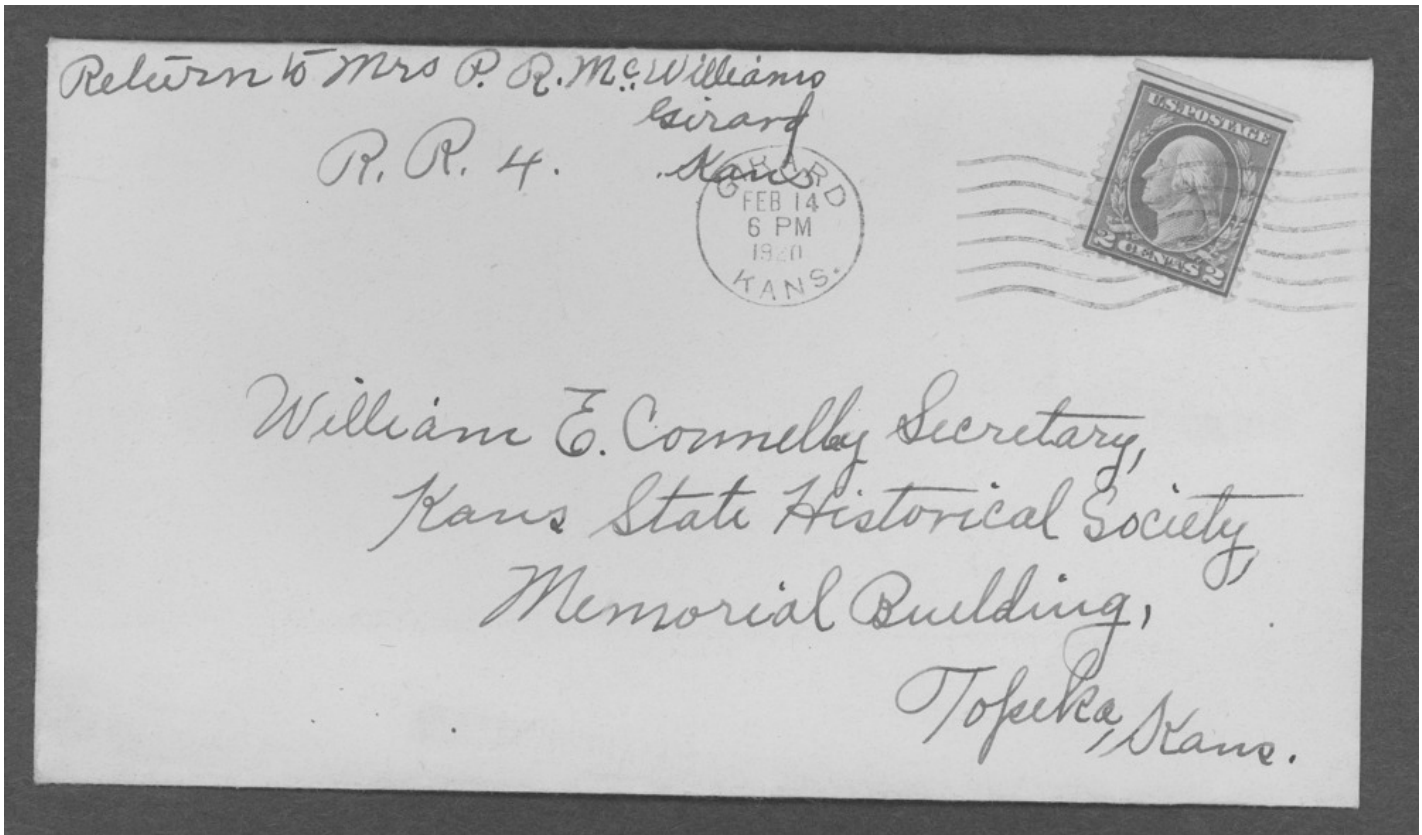 Return to Mrs P. R. Mc. Williams
Girard
R. R. 4. Kans
GIRARD
FEB 14
6 PM
1920
KANS.
U.S. POSTAGE
2 CENTS 2
William E. Connelly Secretary,
Kans State Historical Society,
Memorial Building,
Topeka, Kans.